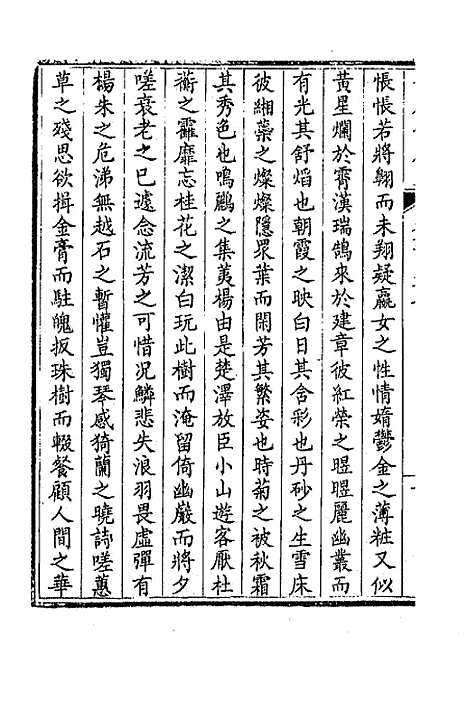 悵悵若將翺而未翔疑嬴女之性情婿鬱金之薄粧又似
黃星爛於霄漢瑞鵠來於建章彼紅榮之㫼㫼麗幽叢而
有光其舒焰也朝霞之映白日其含彩也丹砂之生雪床
彼緗蘂之燦燦隱眾葉而閑芳其繁姿也時菊之被秋霜
其秀色也鳴鸝之集荑楊由是楚澤放臣小山遊客厭杜
蘅之霏靡忘桂花之潔白玩此樹而淹留倚幽巖而將夕
嗟衰老之已遽念流芳之可惜况鱗悲失浪羽畏虛彈有
楊朱之危涕無越石之暫懽豈獨琴感猗蘭之曉詩嗟蕙
草之殘思欲揖金膏而駐魄扳珠樹而輟餐顧人間之華